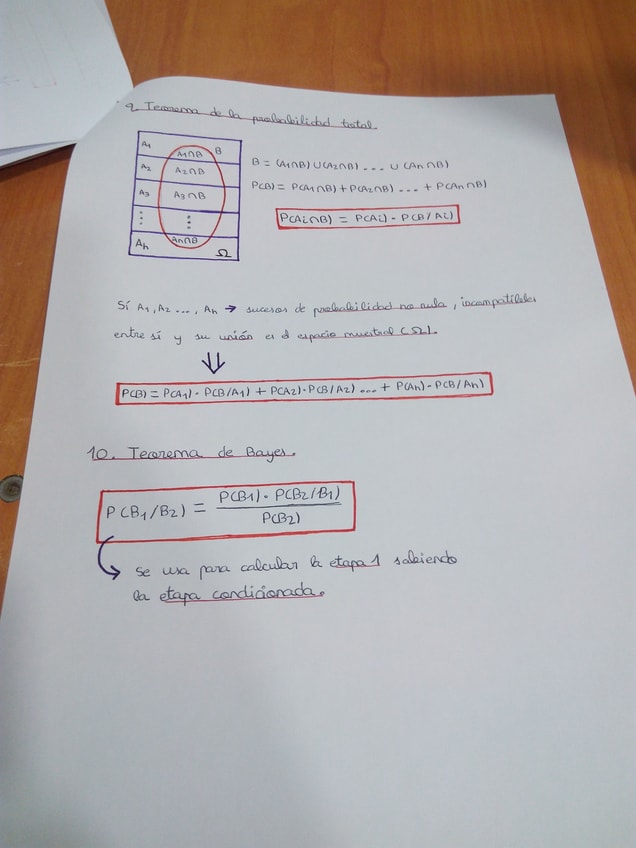 9 Teorema de la probabilidad total.
A1 A1∩B B
A2 A2∩B
A3 A3∩B
⋮ ⋮
An An∩B Ω
B = (A1∩B) ∪ (A2∩B) ... ∪ (An∩B)
P(B) = P(A1∩B) + P(A2∩B) ... + P(An∩B)
P(Ai∩B) = P(Ai) · P(B/Ai)
Sí A1, A2 ..., An → sucesos de probabilidad no nula, incompatibles
entre sí y su unión es el espacio muestral (Ω).
⇓
P(B) = P(A1) · P(B/A1) + P(A2) · P(B/A2) ... + P(An) · P(B/An)
10. Teorema de Bayes.
P(B1/B2) = P(B1) · P(B2/B1)
P(B2)
se usa para calcular la etapa 1 sabiendo
la etapa condicionada.